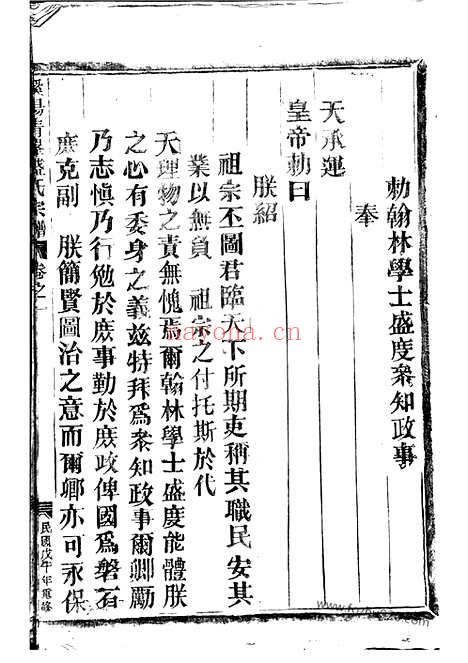 勅翰林學士盛度叅知政事
奉
天承運
皇帝勅曰
朕紹
祖宗丕圖君臨天下所期吏稱其職民安其
業以無負 祖宗之付托斯於代
天理物之責無愧焉爾翰林學士盛度能體朕
之心有委身之義兹特拜爲叅知政事爾卿勵
乃志愼乃行勉於庶事勤於庶政俾國爲磐石
庶克副 朕簡賢圖治之意而爾卿亦可永保
盛氏宗譜 卷之一 民國戊午年重修